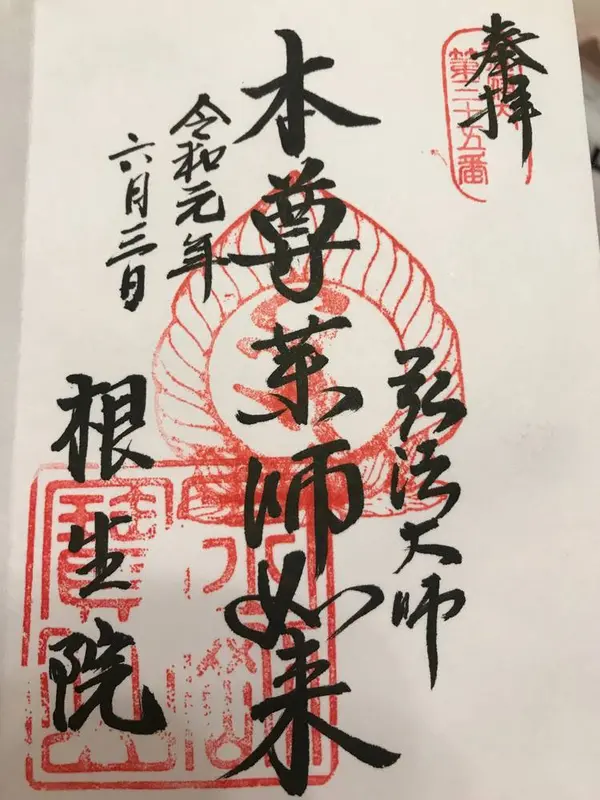 奉拝
第三十五番
弘法大師
本尊薬師如来
令和元年
六月三日
根生院